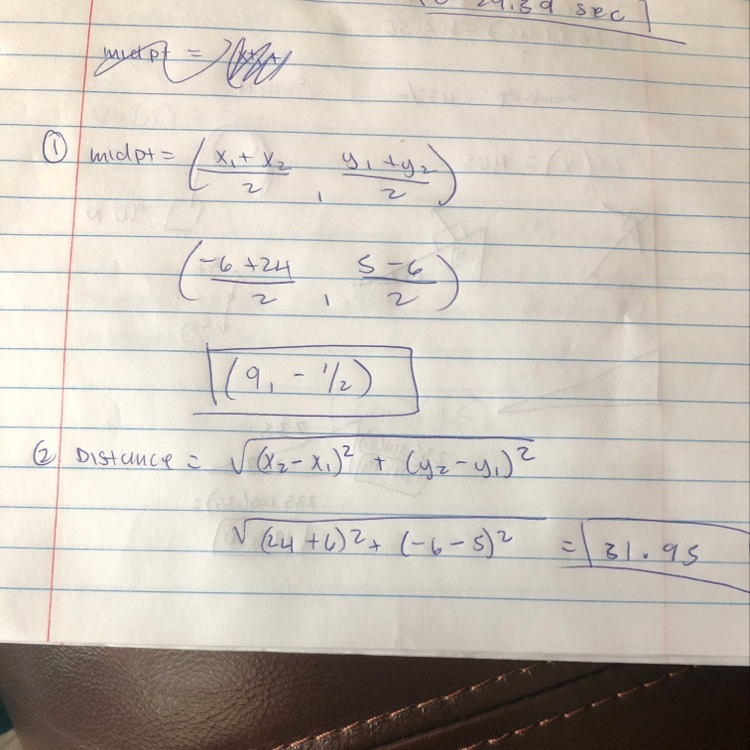 29.89 sec
midpt =
① midpt = (x₁ + x₂ / 2 , y₁ + y₂ / 2)
(-6 + 24 / 2 , 5 - 6 / 2)
(9, - 1/2)
② Distance = √(x₂ - x₁)² + (y₂ - y₁)²
√(24 + 6)² + (-6 - 5)² = 31.95